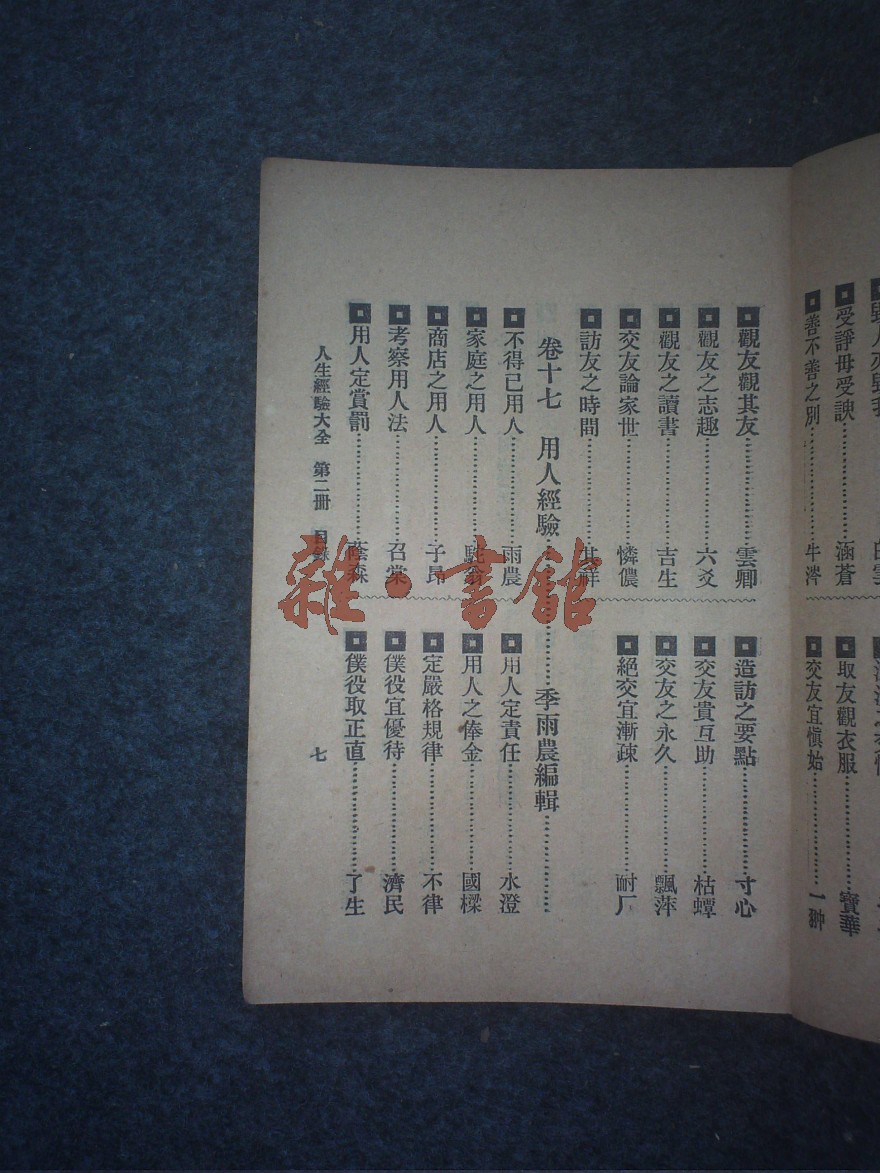 受諍毋受諛……涵蒼
善不善之別……牛涔
取友觀衣服……寶華
交友宜愼始……一翀
觀友觀其友……雲卿
觀友之志趣……六爻
觀友之讀書……吉生
交友論家世……憐儂
訪友之時間……其祥
造訪之要點……寸心
交友貴互助……枯蟫
交友之永久……飄萍
絕交宜漸疎……耐厂
卷十七 用人經驗……季雨農編輯……
不得已用人……雨農
家庭之用人……駝翁
商店之用人……子昂
考察用人法……召棠
用人定賞罰……蔭森
用人定責任……水澄
用人之俸金……國樑
定嚴格規律……不律
僕役宜優待……濟民
僕役取正直……了生
人生經驗大全 第二冊 目錄 七
雜·書館